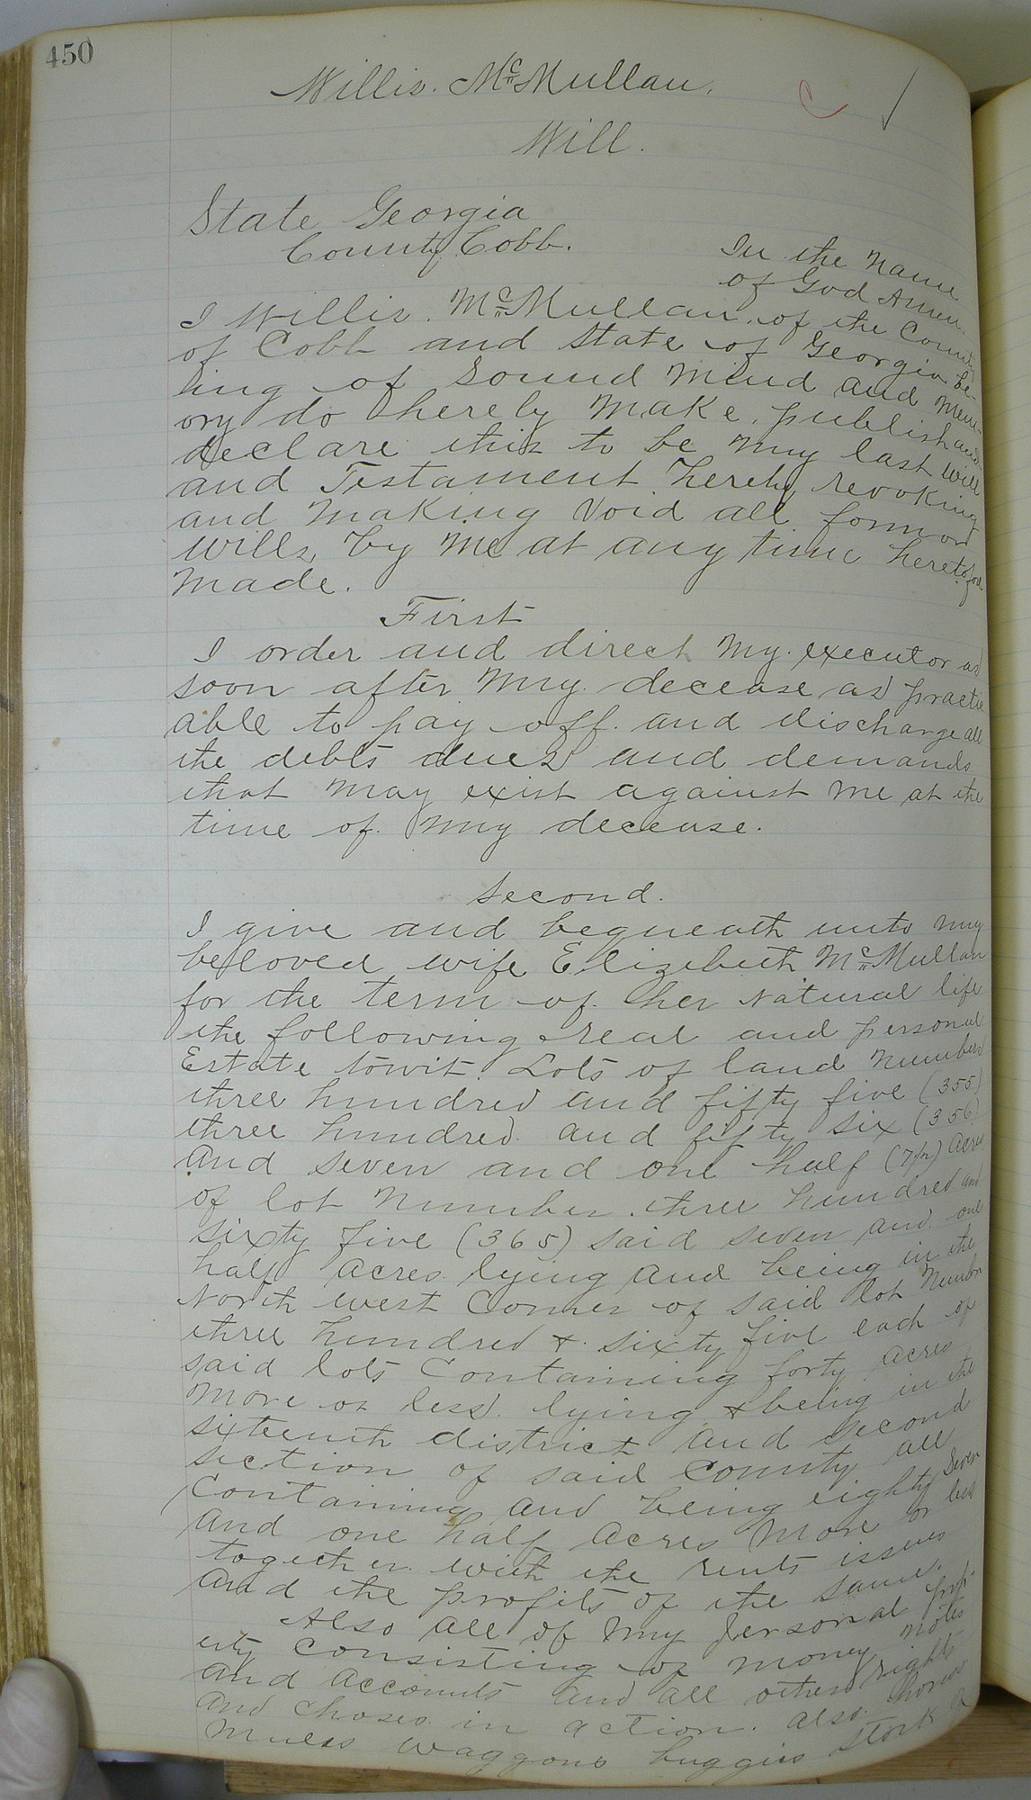 450
Willis. McMullan.
Will.
State Georgia
County Cobb.
In the name
of God Amen.
I Willis. McMullan, of the County
of Cobb and State of Georgia be-
ing of Sound Mind and Mem-
ory do hereby Make, publish and
declare this to be my last will
and Testament hereby revoking
and making Void all former
wills, by me at any time heretofore
made.
First
I order and direct my executor as
soon after my decease as practic
able to pay off and discharge all
the debts dues and demands
that may exist against me at the
time of my decease.
Second.
I give and bequeath unto my
beloved wife Elizebeth McMullan
for the term of her natural life
the following real and personal
Estate towit. Lots of land numbers
three hundred and fifty five (355)
three hundred and fifty six (356)
and seven and one half (7½) acres
of lot number three hundred and
sixty five (365) said seven and one
half acres lying and being in the
North west Corner of said lot Number
three hundred & sixty five each of
said lots Containing forty acres
more or less. lying & being in the
sixteenth district and second
section of said County all
Containing and being eighty seven
and one half acres more or less
together with the rents issues
and the profits of the same.
Also all of my personal prop-
erty consisting of money notes
and accounts and all other rights
and choses in action. also horses
mules waggons buggies stock